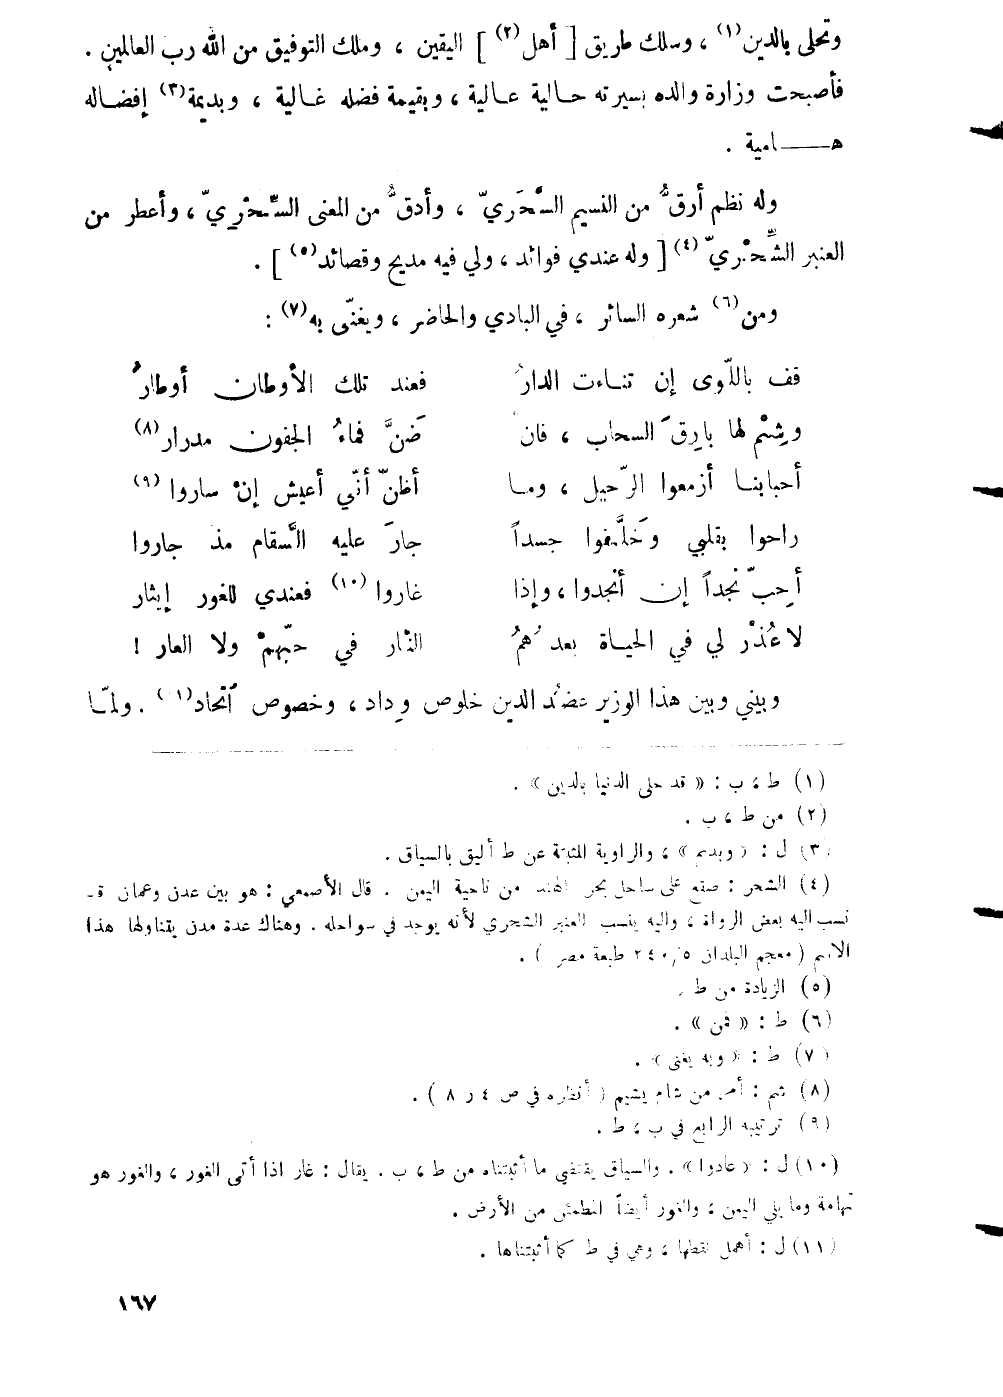 وتحلى بالدين(١) ، وسلك طريق [ أهل(٢) ] اليقين ، وملك التوفيق من الله رب العالمين .
فأصبحت وزارة والده بسيرته حـالية عـالية ، وبقيمة فضله غـالية ، وبديمة(٣) إفضـاله
هـــامية .
وله نظم أرقُّ من النسيم السَّحَريّ ، وأدقُّ من المعنى السِّحْرِيّ ، وأعطر من
العنبر الشِّحْرِيّ(٤) [ وله عندي فوائد ، ولي فيه مديح وقصائد(٥) ] .
ومن(٦) شعره السائر ، في البادي والحاضر ، ويغنّى به(٧) :
قف باللّوى إن تنـاءت الدارُ فعند تلك الأوطان أوطارُ
وشِمْ لها بارِقَ السحاب ، فان ضَنَّ فماءُ الجفون مدرار(٨)
أحبابنـا أزمعوا الرّحيل ، ومـا أظنّ أنّي أعيش إنْ ساروا(٩)
راحوا بقلبي وخَلَّفوا جسداً جارَ عليه السَّقام مذ جاروا
أحِبّ نجداً إن أنجدوا ، وإذا غاروا(١٠) فعندي للغور إيثار
لا عُذْرَ لي في الحيـاة بعدهمُ النّار في حبّهمْ ولا العار !
وبيني وبين هذا الوزير عضُد الدين خلوص وداد ، وخصوص اتّحاد(١١) . ولمّـا
(١) ط ، ب : « قد حلى الدنيا بالدين » .
(٢) من ط ، ب .
(٣) ل : « وبديم » ، والراوية المثبتة عن ط أليق بالسياق .
(٤) الشحر : صقع على ساحل بحر الهند من ناحية اليمن . قال الأصمعي : هو بين عدن وعمان قـد
نسب اليه بعض الرواة ، واليه ينسب العنبر الشحري لأنه يوجد في سواحله . وهناك عدة مدن يتناولها هذا
الاسم ( معجم البلدان ٥/٢٤٠ طبعة مصر ) .
(٥) الزيادة من ط .
(٦) ط : « فمن » .
(٧) ط : « وبه يغنى » .
(٨) شم : أمر من شام يشيم ( أنظره في ص ٤ ر ٨ ) .
(٩) ترتيبه الرابع في ب ، ط .
(١٠) ل : « عادوا » . والسياق يقتضي ما أثبتناه من ط ، ب . يقال : غار اذا أتى الغور ، والغور هو
تهامة وما يلي اليمن ، والغور أيضاً المطمئن من الأرض .
(١١) ل : أهمل نقطها ، وهي في ط كما أثبتناها .
١٦٧